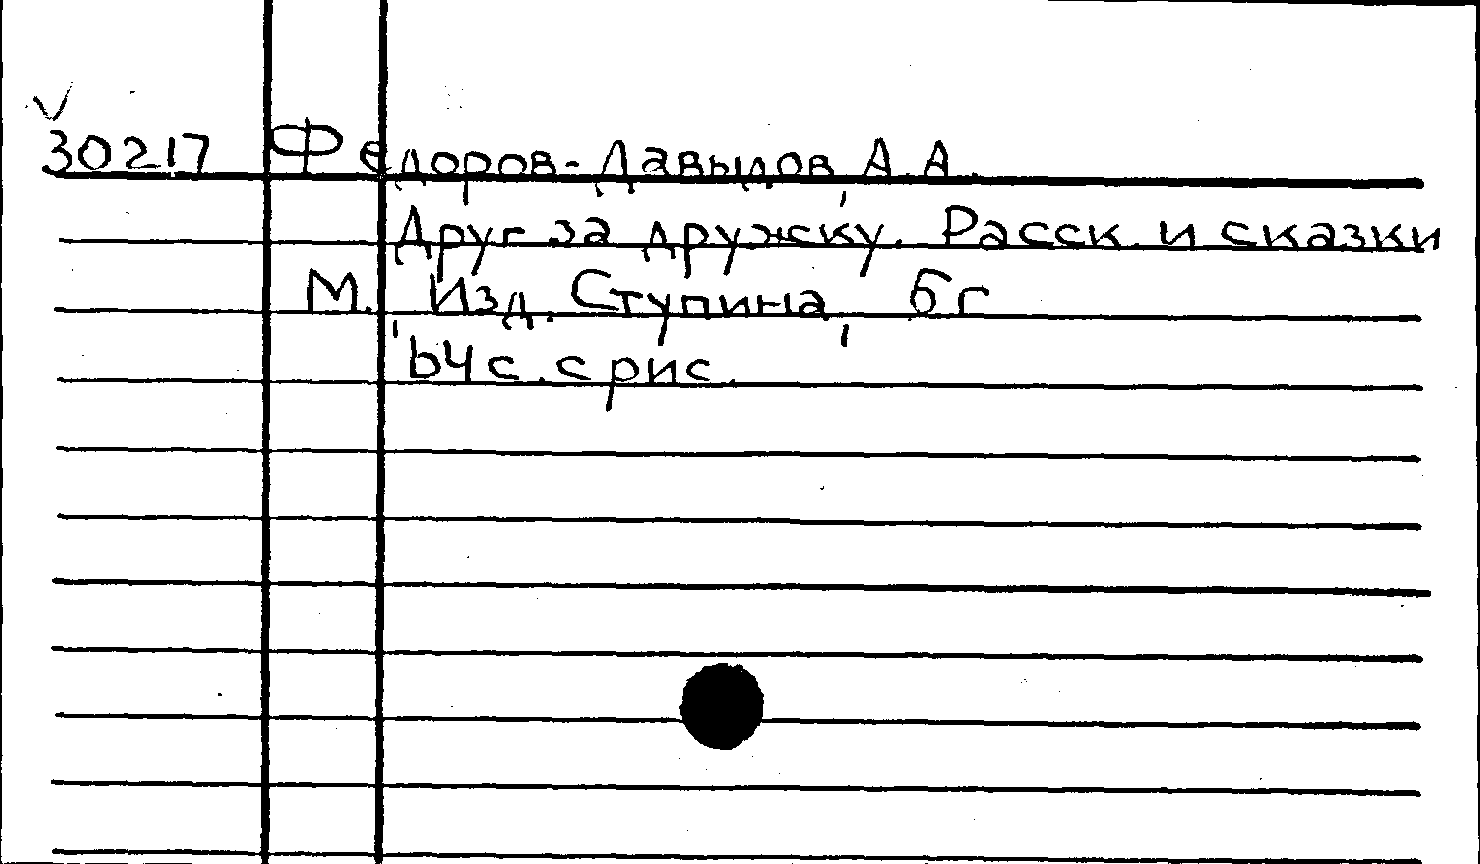 30217 Федоров-Давыдов, А. А.
Друг за дружку. Расск. и сказки
М., Изд. Ступина, б г
64 с. с рис.